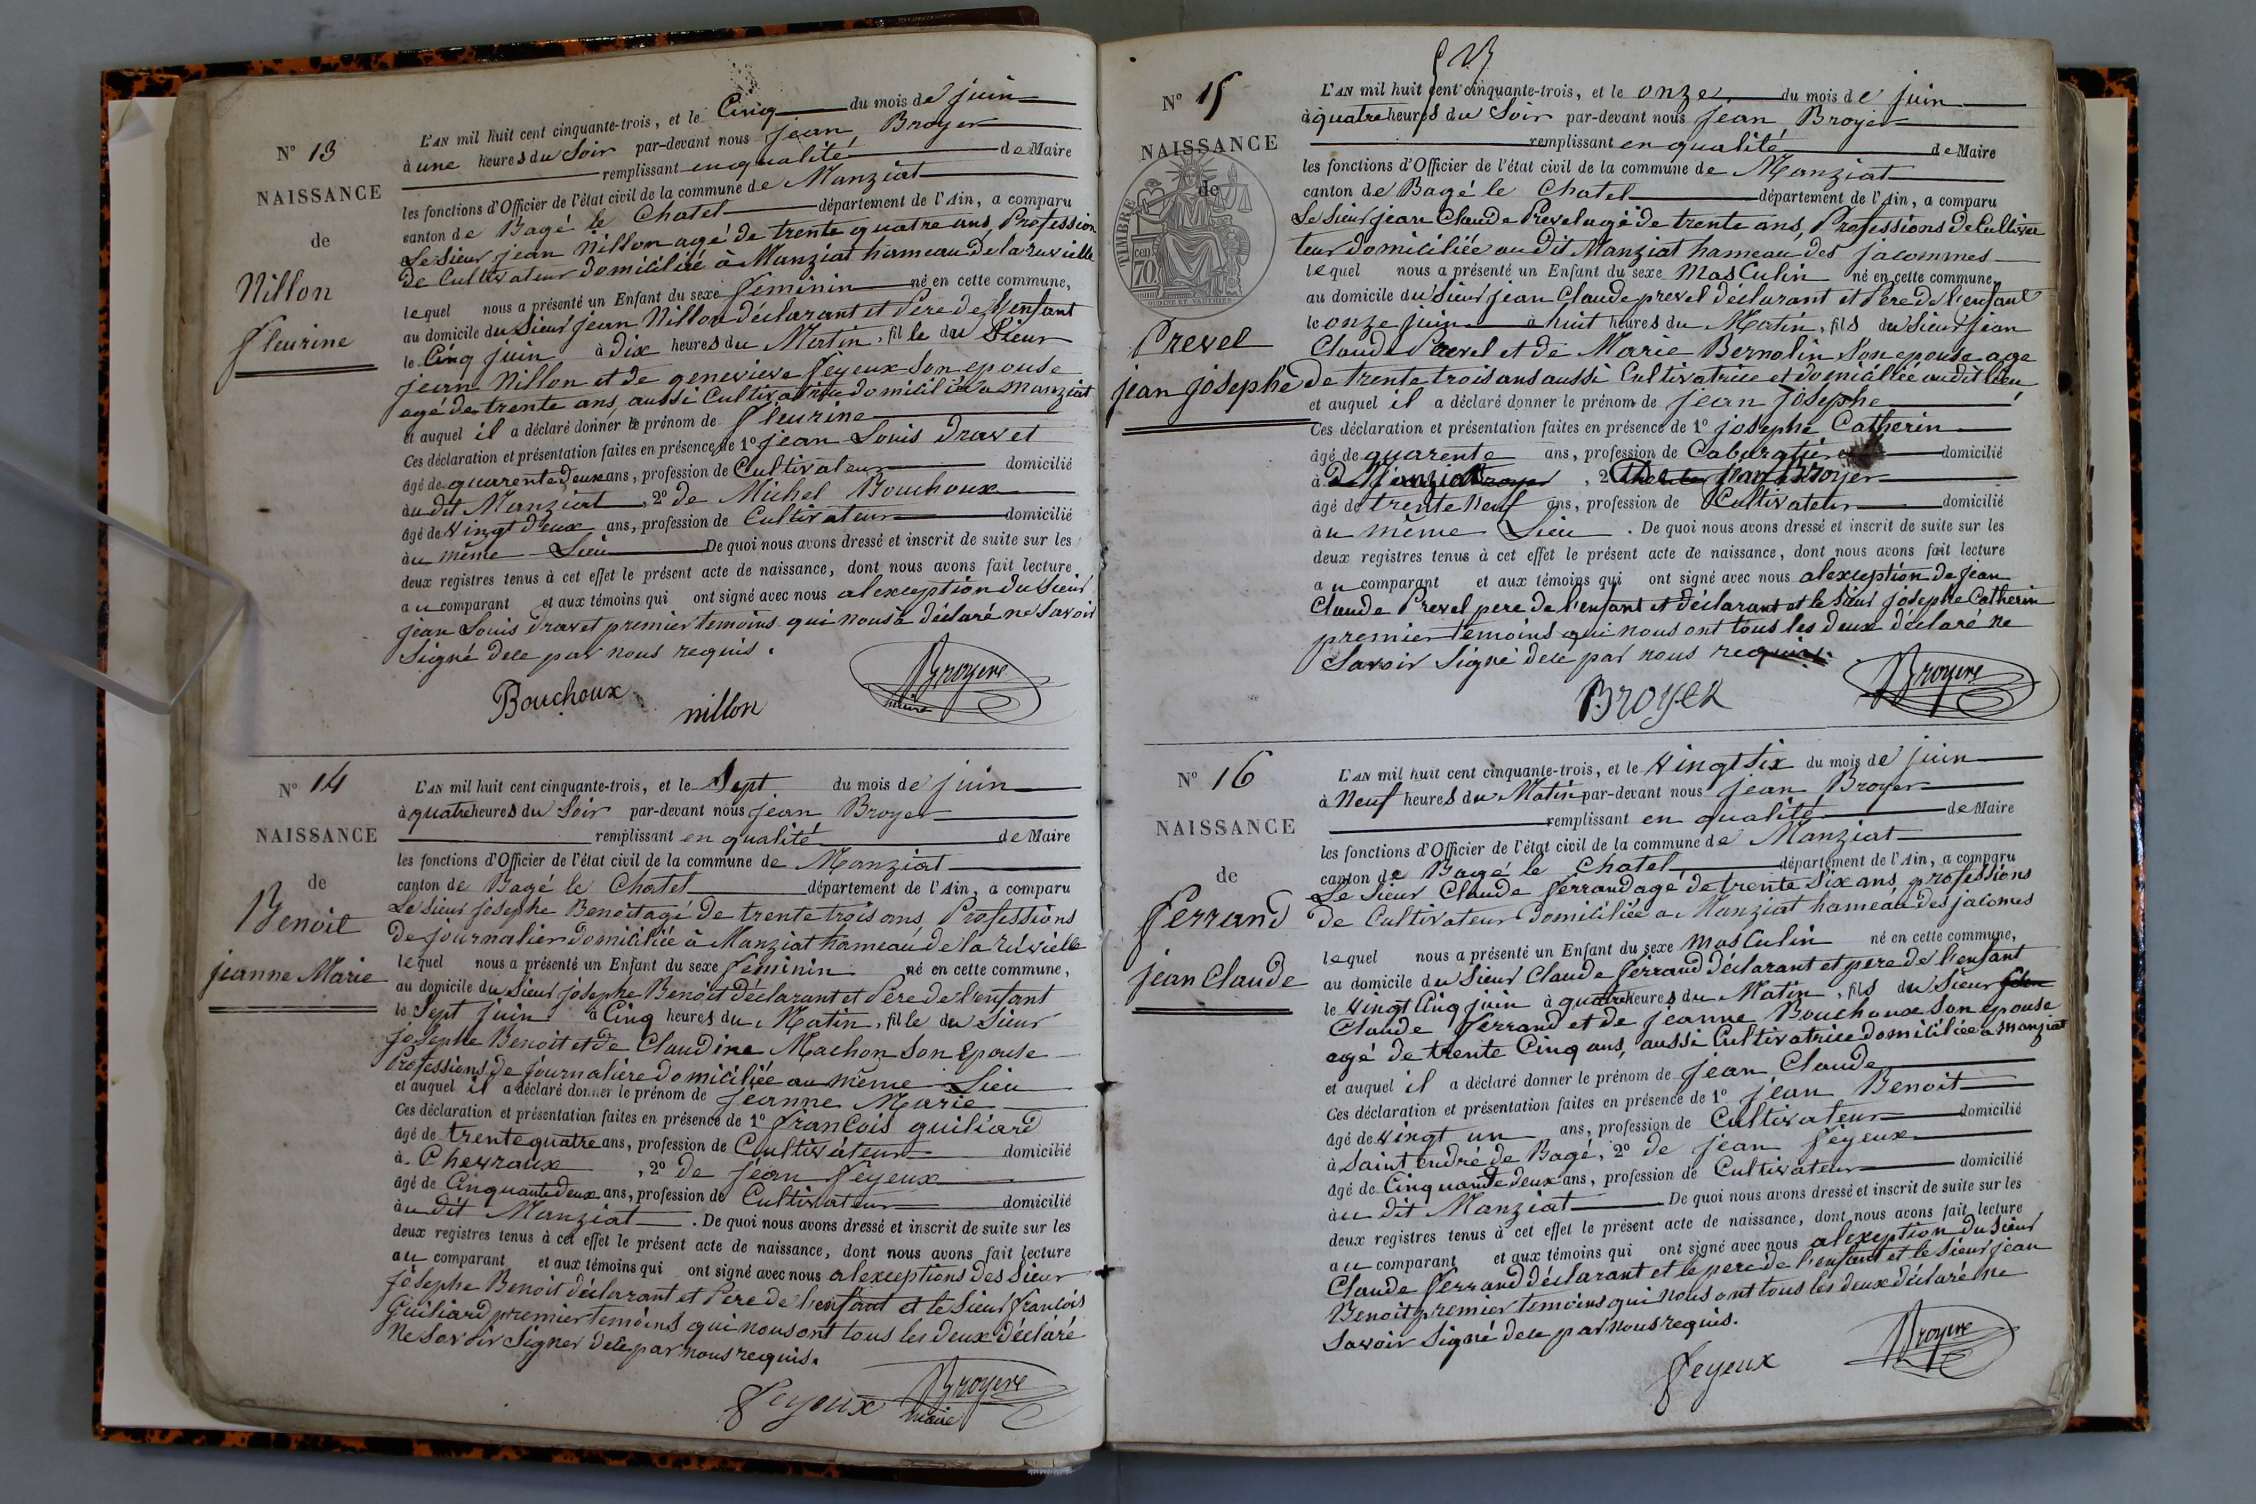 N° 13
NAISSANCE
de
Nillon
fleurine
L'AN mil huit cent cinquante-trois, et le Cinq du mois de juin
à une heures du Soir par-devant nous jean Broyer
remplissant en qualité de Maire
les fonctions d'Officier de l'état civil de la commune de Manziat
canton de Bagé le Chatel département de l'Ain, a comparu
Le Sieur jean Nillon agé de trente quatre ans, Profession
de Cultivateur domicilié à Manziat hameau de la ruvielle
lequel nous a présenté un Enfant du sexe feminin né en cette commune,
au domicile du Sieur jean Nillon déclarant et Pere de l'enfant
le Cinq juin à dix heures du Matin, fille du Sieur
jean Nillon et de genevieve feyeux Son epouse
agé de trente ans, aussi Cultivatrice domiciliée a manziat
et auquel il a déclaré donner le prénom de fleurine
Ces déclaration et présentation faites en présence de 1° jean Louis dravet
âgé de quarente deux ans, profession de Cultivateur domicilié
au dit Manziat, 2° de Michel Bouchoux
âgé de vingt deux ans, profession de Cultivateur domicilié
au même Lieu De quoi nous avons dressé et inscrit de suite sur les
deux registres tenus à cet effet le présent acte de naissance, dont nous avons fait lecture
au comparant et aux témoins qui ont signé avec nous alexception du Sieur
jean Louis dravet premier temoins qui nous à déclaré ne Savoir
Signé dece par nous requis.
Bouchoux nillon Broyere
maire
N° 14
NAISSANCE
de
Benoit
jeanne Marie
L'AN mil huit cent cinquante-trois, et le Sept du mois de juin
à quatre heures du Soir par-devant nous jean Broyer
remplissant en qualité de Maire
les fonctions d'Officier de l'état civil de la commune de Manziat
canton de Bagé le Chatel département de l'Ain, a comparu
Le Sieur josephe Benoit agé de trente trois ans, Professions
de journalier domiciliée à Manziat hameau de la ruvielle
lequel nous a présenté un Enfant du sexe feminin né en cette commune,
au domicile du Sieur josephe Benoit déclarant et Pere de l'enfant
le Sept juin à Cinq heures du Matin, fille du Sieur
josephe Benoit et de Claudine Machon Son Epouse
Professions de journaliere domiciliée au même Lieu
et auquel il a déclaré donner le prénom de jeanne Marie
Ces déclaration et présentation faites en présence de 1° francois guiliard
âgé de trente quatre ans, profession de Cultivateur domicilié
à Chevraux, 2° de jean feyeux
âgé de Cinquante deux ans, profession de Cultivateur domicilié
au dit Manziat. De quoi nous avons dressé et inscrit de suite sur les
deux registres tenus à cet effet le présent acte de naissance, dont nous avons fait lecture
au comparant et aux témoins qui ont signé avec nous alexceptions des Sieur
josephe Benoit déclarant et Pere de l'enfant et le Sieur francois
Guiliard premier temoins qui nous ont tous les deux déclaré
Ne Savoir Signer dece par nous requis.
feyeux Broyere
maire
N° 15
NAISSANCE
de
TIMBRE
70
Prevel
jean josephe
L'AN mil huit cent cinquante-trois, et le onze du mois de juin
à quatre heures du Soir par-devant nous jean Broyer
remplissant en qualité de Maire
les fonctions d'Officier de l'état civil de la commune de Manziat
canton de Bagé le Chatel département de l'Ain, a comparu
Le Sieur jean Claude Prevel agé de trente ans, Professions de Cultiva
teur domiciliée au dit Manziat hameau des jacommes
lequel nous a présenté un Enfant du sexe MasCulin né en cette commune,
au domicile du Sieur jean Claude prevel déclarant et Pere de l'enfant
le onze juin à huit heures du Matin, fils du Sieur jean
Claude Prevel et de Marie Bernolin Son epouse age
de trente trois ans aussi Cultivatrice et domiciliée au dit lieu
et auquel il a déclaré donner le prénom de jean josephe
Ces déclaration et présentation faites en présence de 1° josephe Catherin
âgé de quarente ans, profession de Cabaratier domicilié
à Manziat, 2° jean Broyer
âgé de trente Neuf ans, profession de Cultivateur domicilié
au même Lieu. De quoi nous avons dressé et inscrit de suite sur les
deux registres tenus à cet effet le présent acte de naissance, dont nous avons fait lecture
au comparant et aux témoins qui ont signé avec nous alexception de jean
Claude Prevel pere de l'enfant et déclarant et le Sieur josephe Catherin
premier temoins qui nous ont tous les deux déclaré ne
Savoir Signé dece par nous requis.
BROYER Broyere
N° 16
NAISSANCE
de
ferrand
jean Claude
L'AN mil huit cent cinquante-trois, et le Vingt Six du mois de juin
à Neuf heures du Matin par-devant nous jean Broyer
remplissant en qualité de Maire
les fonctions d'Officier de l'état civil de la commune de Manziat
canton de Bagé le Chatel département de l'Ain, a comparu
Le Sieur Claude ferrand agé de trente Six ans, professions
de Cultivateur domiciliée a Manziat hameau des jacomes
lequel nous a présenté un Enfant du sexe masCulin né en cette commune,
au domicile du Sieur Claude ferrand déclarant et pere de l'enfant
le Vingt Cinq juin à quatre heures du Matin, fils du Sieur
Claude ferrand et de jeanne Bouchoux Son epouse
agé de trente Cinq ans, aussi Cultivatrice domiciliée a manziat
et auquel il a déclaré donner le prénom de jean Claude
Ces déclaration et présentation faites en présence de 1° jean Benoit
âgé de Vingt un ans, profession de Cultivateur domicilié
à Saint endré de Bagé, 2° de jean feyeux
âgé de Cinquante deux ans, profession de Cultivateur domicilié
au dit Manziat De quoi nous avons dressé et inscrit de suite sur les
deux registres tenus à cet effet le présent acte de naissance, dont nous avons fait lecture
au comparant et aux témoins qui ont signé avec nous alexception du Sieur
Claude ferrand déclarant et le pere de l'enfant et le Sieur jean
Benoit premier temoins qui nous ont tous les deux déclaré ne
Savoir Signé dece par nous requis.
feyeux Broyere